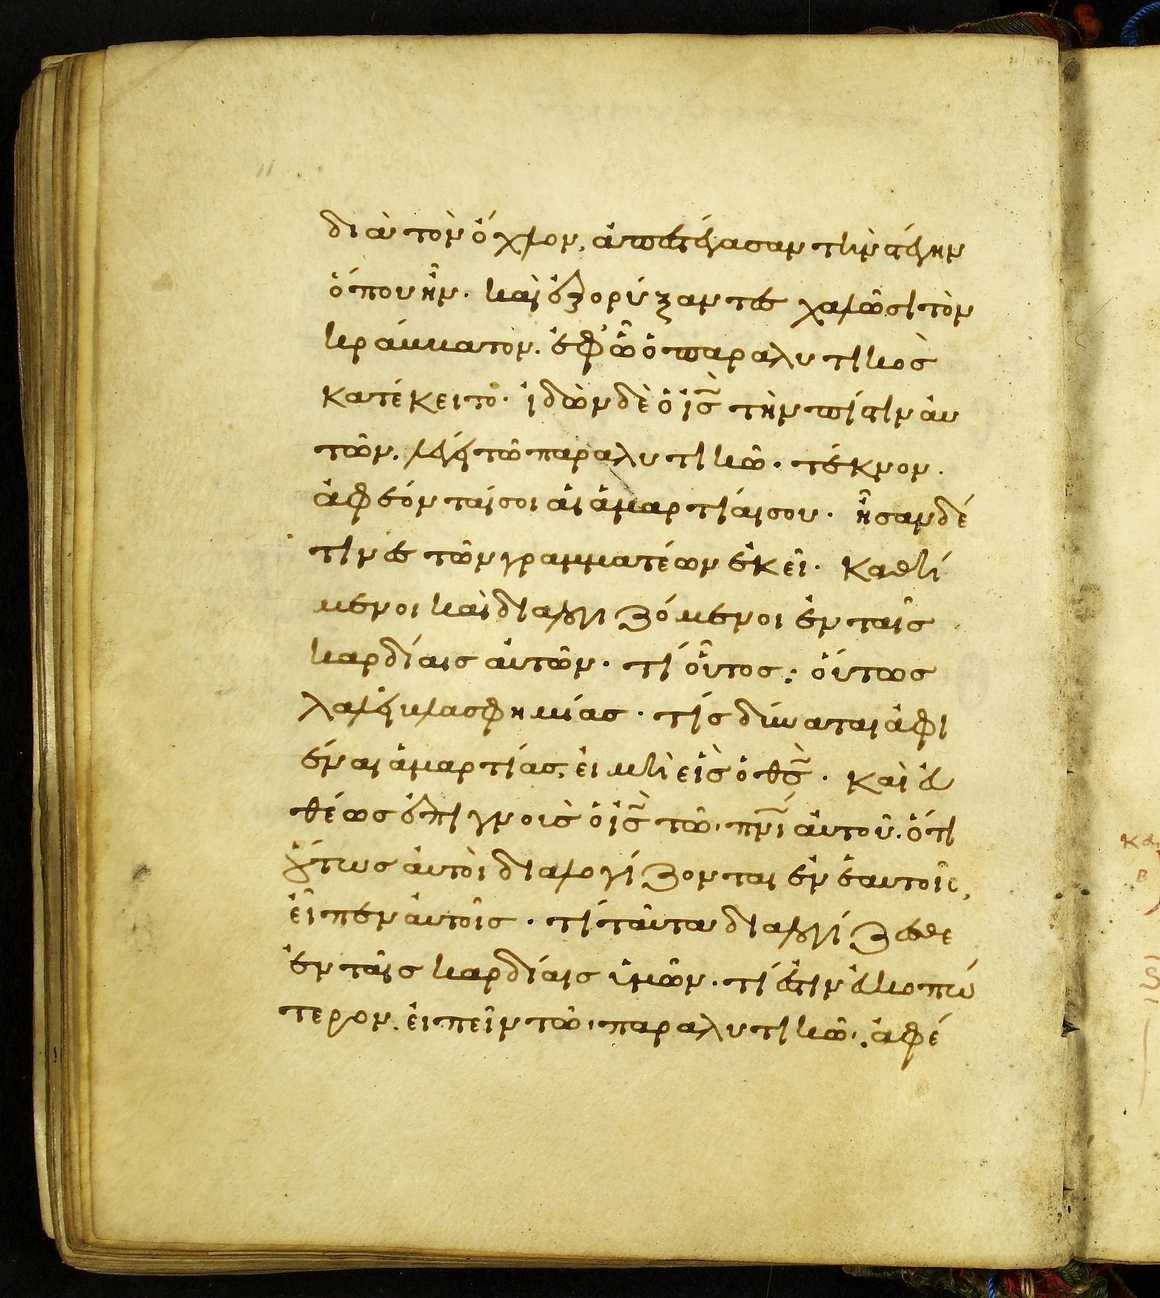 διὰ τὸν ὄχλον, ἀπεστέγασαν τὴν στέγην
ὅπου ἦν. καὶ ἐξορύξαντες χαλῶσι τὸν
κράββατον. ἐφ' ᾧ ὁ παραλυτικὸς
κατέκειτο. ἰδὼν δὲ ὁ ἰ̅ς̅ τὴν πίστιν αὐ
τῶν. λέγει τῶ παραλυτικῶ. τέκνον.
ἀφέονταί σοι αἱ ἁμαρτίαι σου. ἦσαν δέ
τινες τῶν γραμματέων ἐκεῖ. καθή
μενοι καὶ διαλογιζόμενοι ἐν ταῖς
καρδίαις αὐτῶν. τί οὗτος; οὕτως
λαλεῖ βλασφημίας. τίς δύναται ἀφι
έναι ἁμαρτίας, εἰ μὴ εἷς ὁ θ̅ς̅. καὶ εὐ
θέως ἐπιγνοὺς ὁ ἰ̅ς̅ τῶ π̅ν̅ι̅ αὐτοῦ. ὅτι
οὕτως αὐτοὶ διαλογίζονται ἐν ἑαυτοῖς,
εἶπεν αὐτοῖς. τί ταῦτα διαλογίζεσθε
ἐν ταῖς καρδίαις ὑμῶν. τί ἐστιν εὐκοπώ
τερον. εἰπεῖν τῶ παραλυτικῶ. ἀφέ